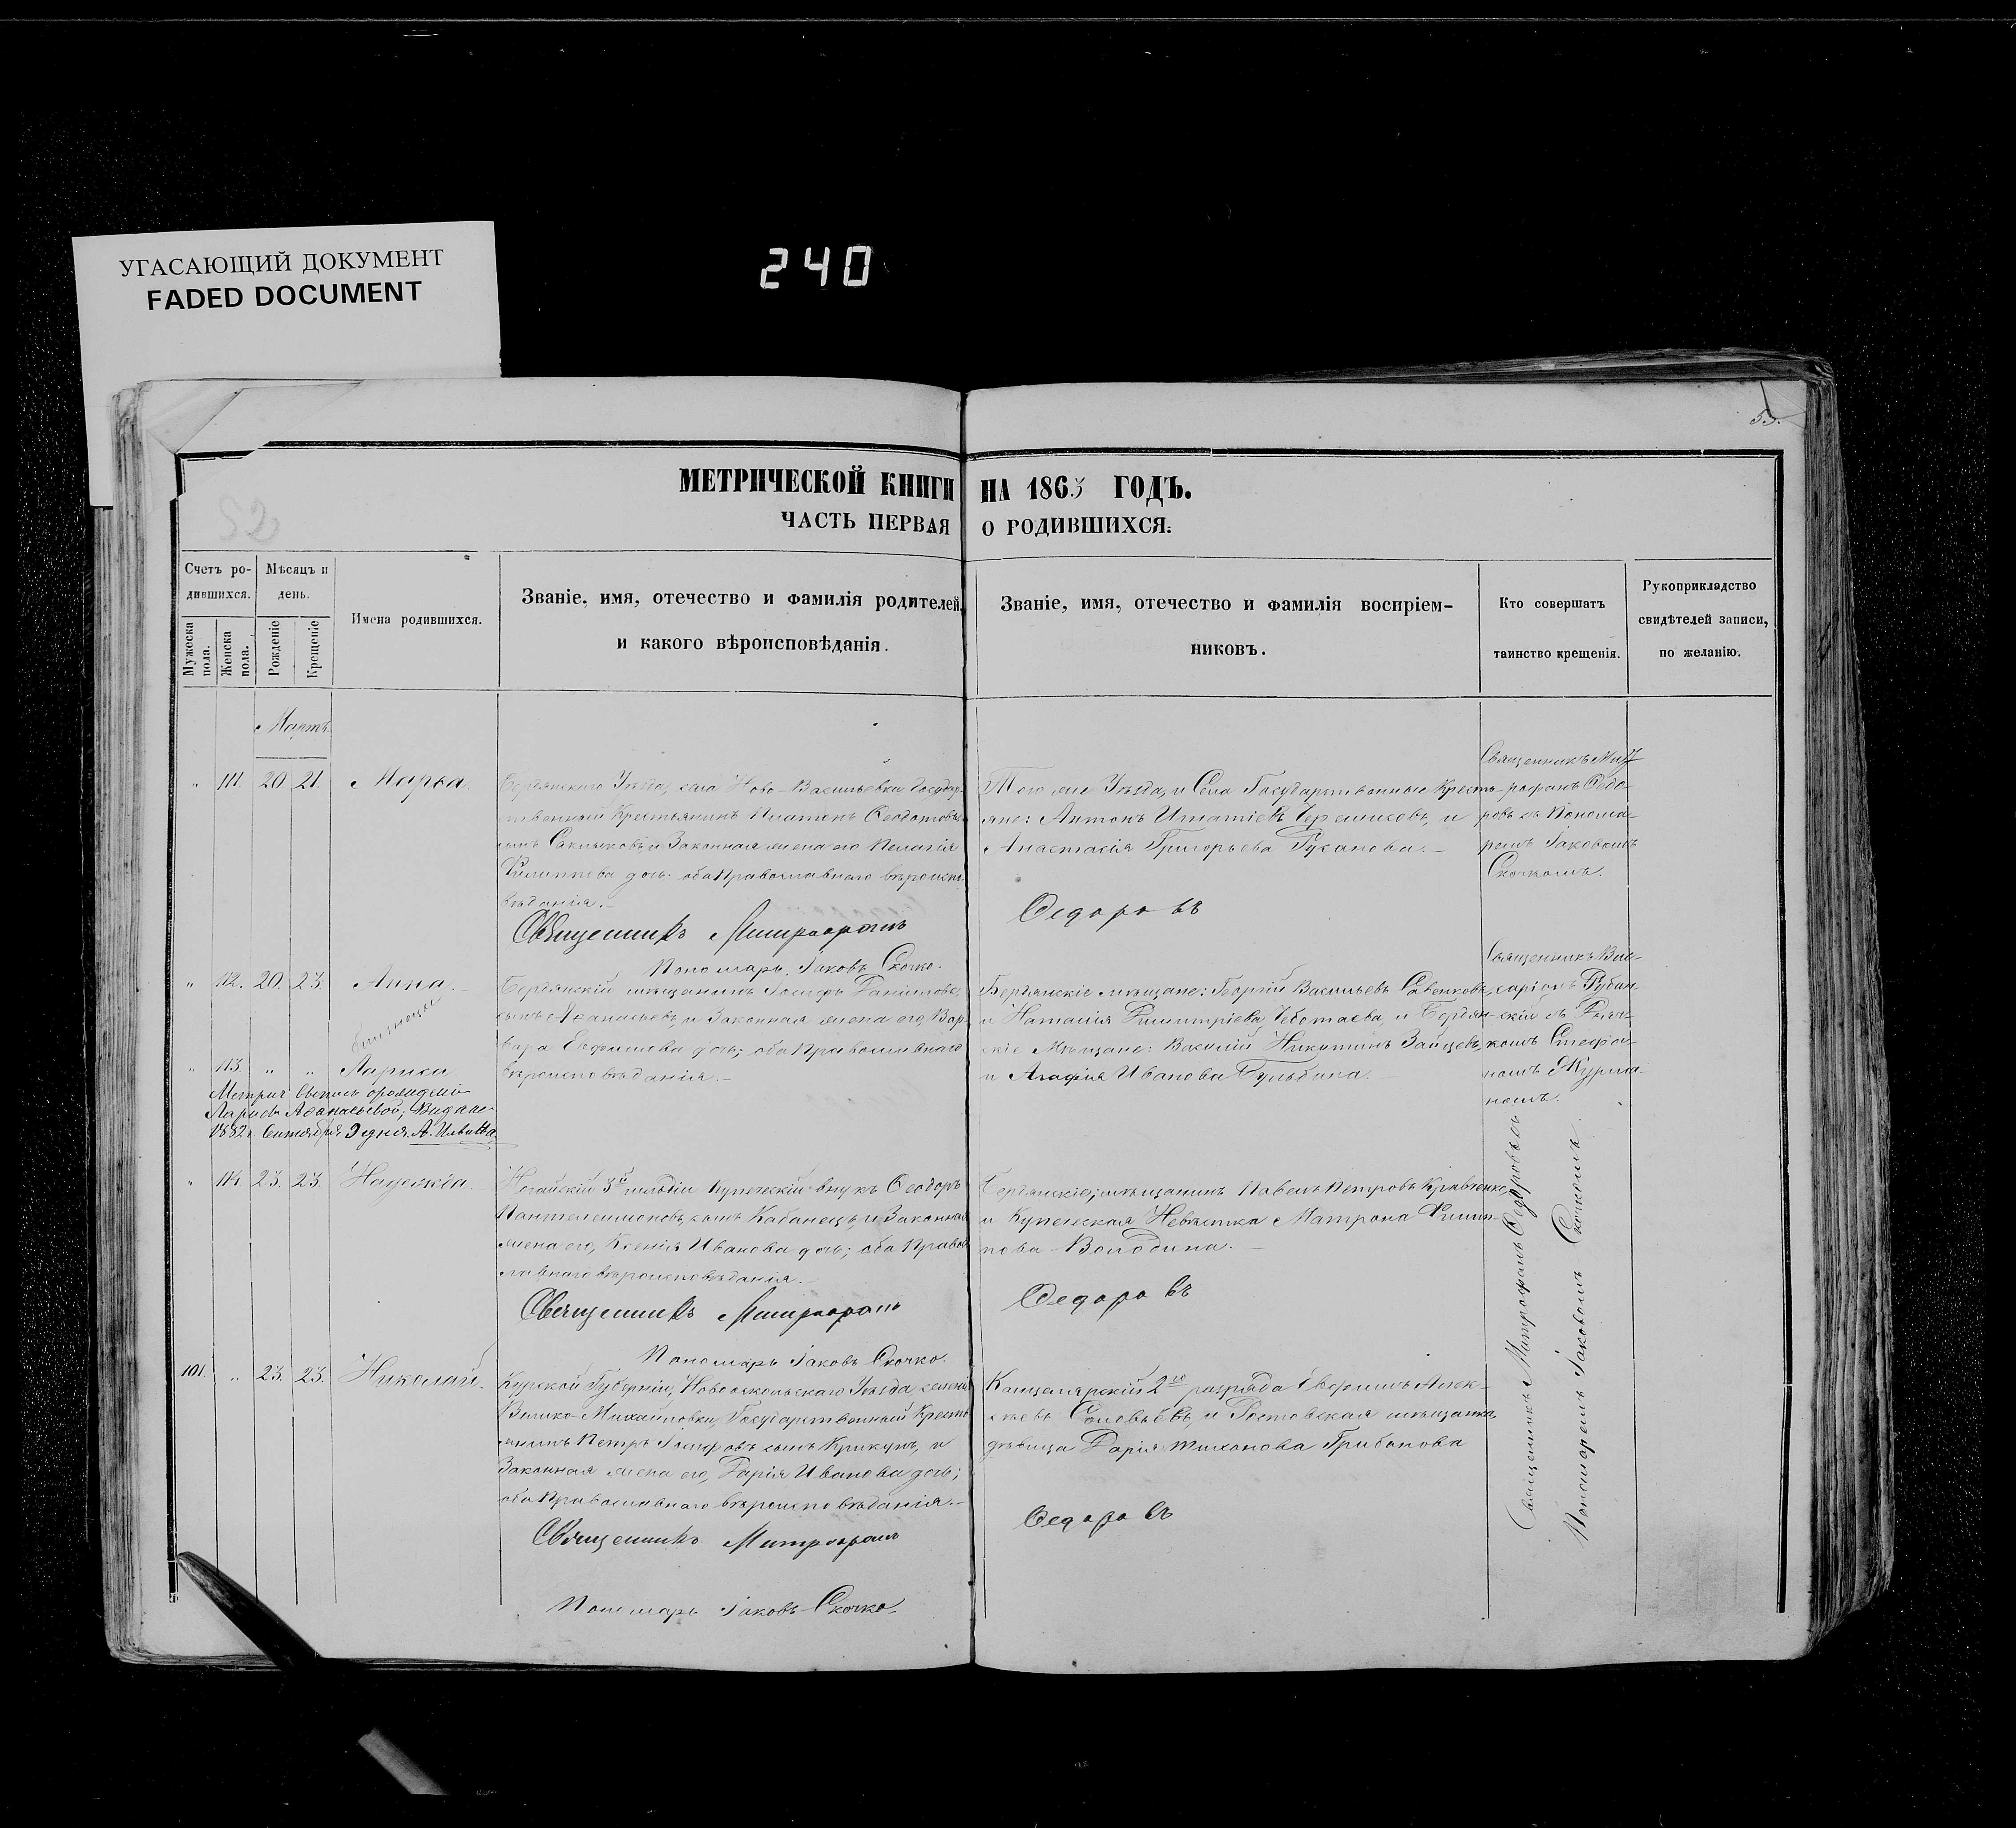 УГАСАЮЩИЙ ДОКУМЕНТ
FADED DOCUMENT
240
53.
52
МЕТРИЧЕСКОЙ КНИГИ НА 1863 ГОДЪ.
ЧАСТЬ ПЕРВАЯ О РОДИВШИХСЯ.
Счетъ ро-
дившихся.
Мужеска пола.
Женска пола.
Мѣсяцъ и
день.
Рожденіе
Крещеніе
Имена родившихся.
Званіе, имя, отечество и фамилія родителей,
и какого вѣроисповѣданія.
Званіе, имя, отечество и фамилія воспріем-
никовъ.
Кто совершатъ
таинство крещенія.
Рукоприкладство
свидѣтелей записи,
по желанію.
Мартъ.
" 111. 20. 21. Марѳа.
Бердянскаго Уѣзда, села Ново-Васильевки Государ-
ственный Крестьянинъ Платонъ Ѳеодотовъ
сынъ и Законная жена его Пелагія
Филиппова дочь; оба Православнаго вѣроиспо-
вѣданія.-
Священникъ Митрофанъ
Пономарь Іаковъ Скочко.
Того же Уѣзда, и Села Государственные Кресть-
яне: Антонъ Игнатіевъ и
Анастасія Григорьева Руханова.-
Ѳедоровъ
Священникъ Мит-
рофанъ Ѳедо-
ровъ съ Понома-
ремъ Іаковомъ
Скочкомъ.
" 112. 20. 23. Анна.-
Близнецы
" 113. " " Лариса
Бердянскій мѣщанинъ Іосифъ Даниловъ
сынъ Аѳанасьевъ, и Законная жена его, Вар-
вара Евфимова дочь; оба Православнаго
вѣроисповѣданія.-
Бердянскіе мѣщане: Георгій Васильевъ Савенковъ,
и Наталія Димитріева Чеботаева, и Бердян-
скіе Мѣщане: Василій Никитинъ Зайцевъ,
и Агафія Иванова Бульбина.-
Священникъ Вис-
саріонъ Рубан-
скій съ Дьяч-
комъ Стефа-
номъ
номъ.
Метрич выпись о рожденіи
Ларисы Аѳанасьевой; Выдана
1882 г. Сентября 9 дня.
" 114 23. 23. Надежда.
Ногайскій 3й гильдіи Купеческій внукъ Ѳеодоръ
Пантелеимоновъ сынъ Кабанецъ, и Законная
жена его, Ксенія Иванова дочь; оба Правос-
лавнаго вѣроисповѣданія.-
Священникъ Митрофанъ
Пономарь Іаковъ Скочко.
Бердянскіе; мѣщанинъ Павелъ Петровъ Кравченко,
и Купеческая Невѣстка Матрона Филип-
пова Володина.-
Ѳедоровъ
101. " 23. 23. Николай.
Курской Губерніи, Новооскольскаго Уѣзда, селенія
Велико-Михайловки, Государственный Кресть-
янинъ Петръ Іосифовъ сынъ Крикунъ, и
Законная жена его, Дарія Иванова дочь;
оба Православнаго вѣроисповѣданія.-
Священникъ Митрофанъ
Пономарь Іаковъ Скочко.
Канцелярскій 2го разряда Алек-
сѣевъ Соловьевъ, и Ростовская мѣщанка,
дѣвица Дарія Тихонова Грибанова
Ѳедоровъ
Священникъ Митрофанъ Ѳедоровъ съ
Пономаремъ Іаковомъ Скочкомъ.